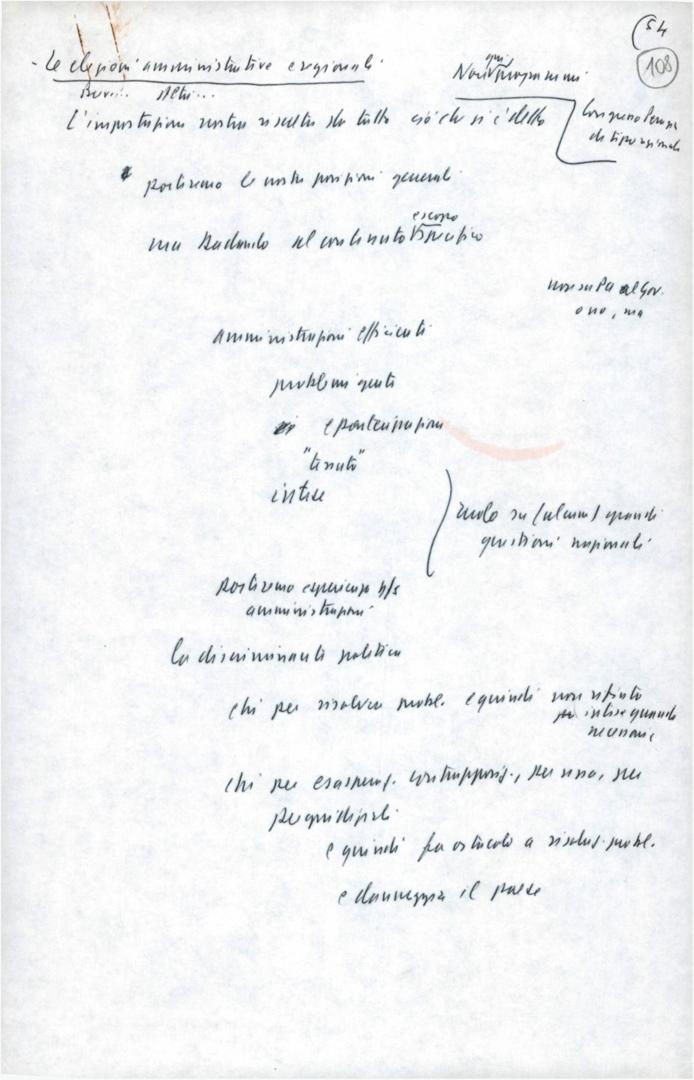 54
108
- Le elezioni amministrative e regionali
qui
Non programmi
Buroi... Altri...
L'impostazione nostra risulta da tutto ciò che si è detto
Conseguenza
di tipo regionale
porteremo le nostre posizioni generali
ma badando al contenuto e scopo specifico
non su PCI al Gov.
o no, ma
amministrazioni efficienti
problemi gente
e partecipazione
"tenuta"
intese
ruolo su (alcune) grandi
questioni nazionali
Porteremo esperienza n/s
amministrazioni
la discriminante politica
chi per risolvere probl. e quindi non rifiuto
intese quando
necessarie
chi per esasperaz. contrapposiz., per rissa, per
pregiudiziali
e quindi fa ostacolo a risoluz. probl.
e danneggia il paese